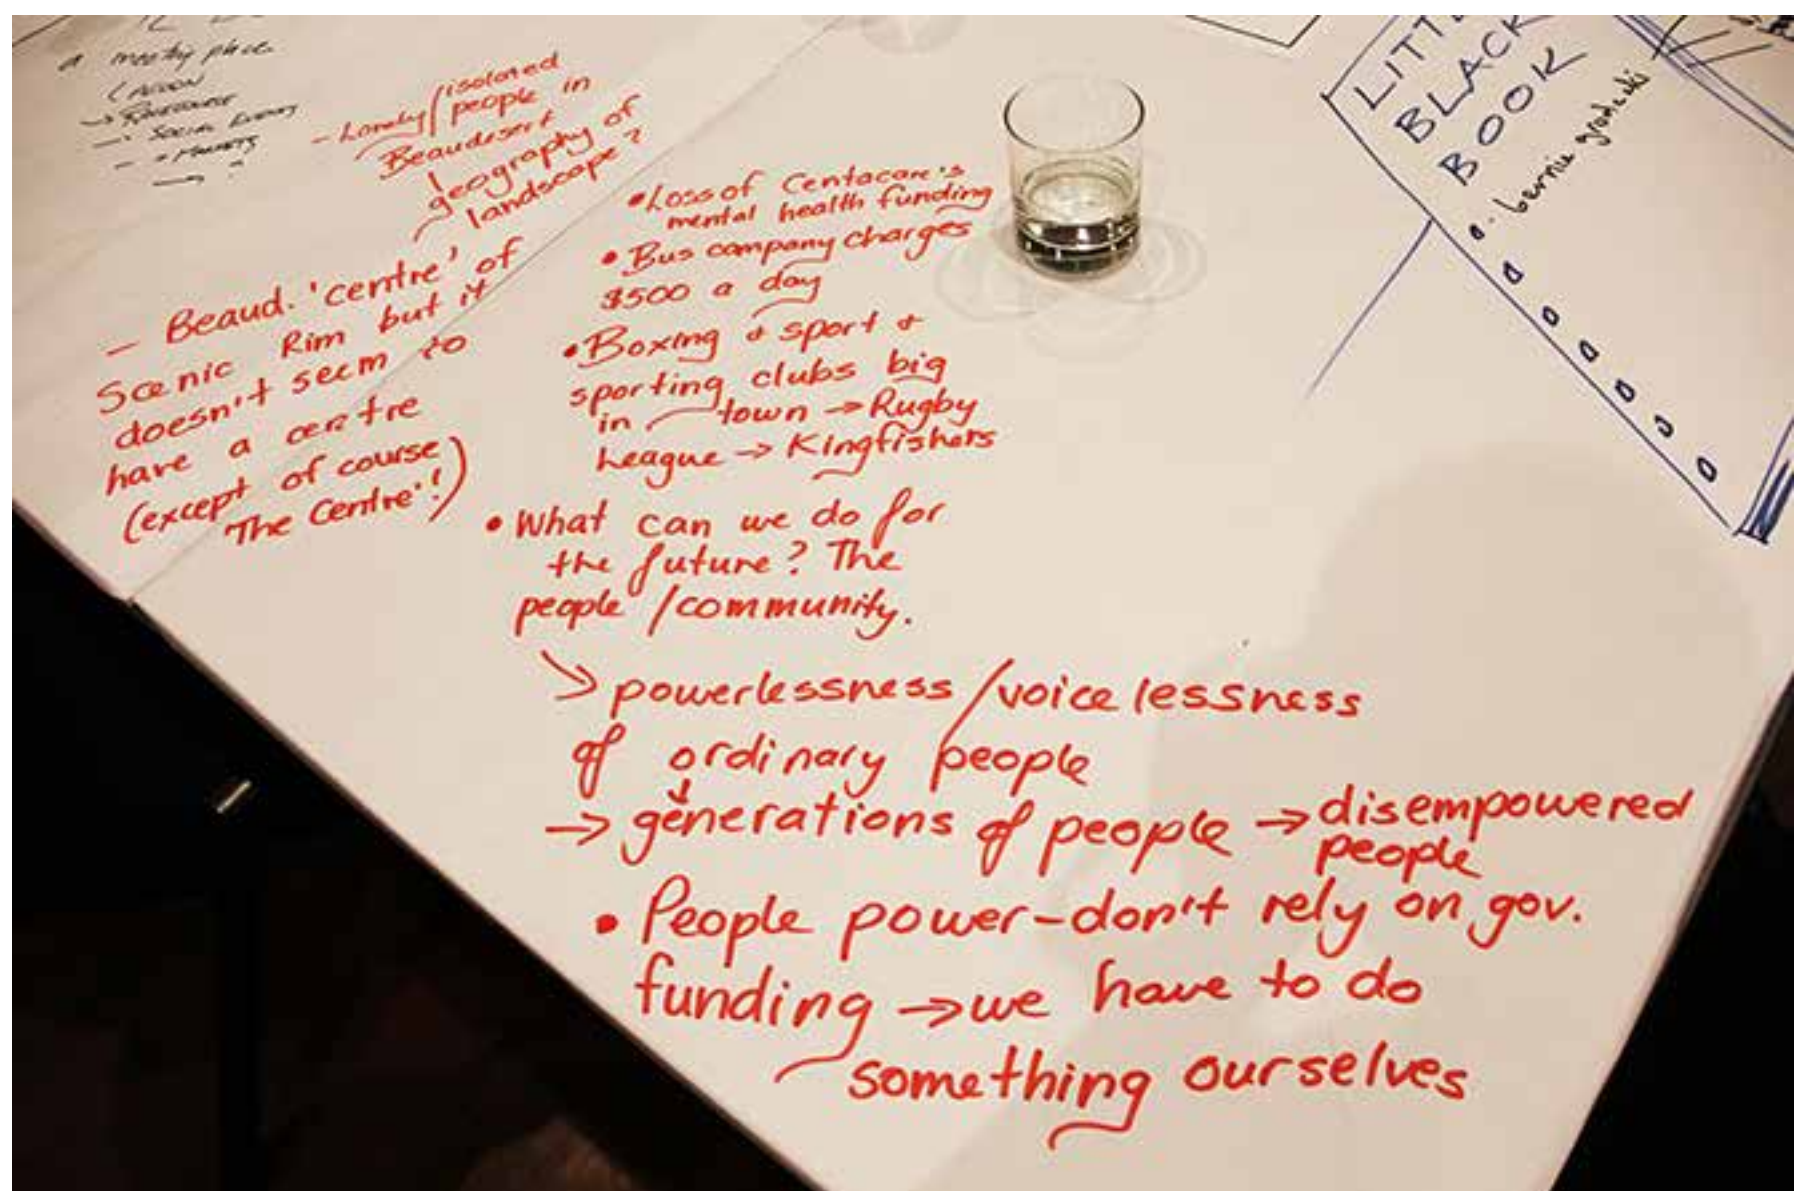 a meeting place
(ACTION
→ RACECOURSE
- SOCIAL EVENTS
- + MARKETS
→ ?
- Lonely/isolated
people in
Beaudesert
geography of
landscape?
- Beaud. 'centre' of
Scenic Rim but it
doesn't seem to
have a centre
(except of course
'The Centre'!)
• Loss of Centacare's
mental health funding
• Bus company charges
$500 a day
• Boxing + sport +
sporting clubs big
in town → Rugby
League → Kingfishers
• What can we do for
the future? The
people/community.
→ powerlessness/voicelessness
of ordinary people
→ generations of people → disempowered
people
• People power-don't rely on gov.
funding → we have to do
something ourselves
BLACK
BOOK